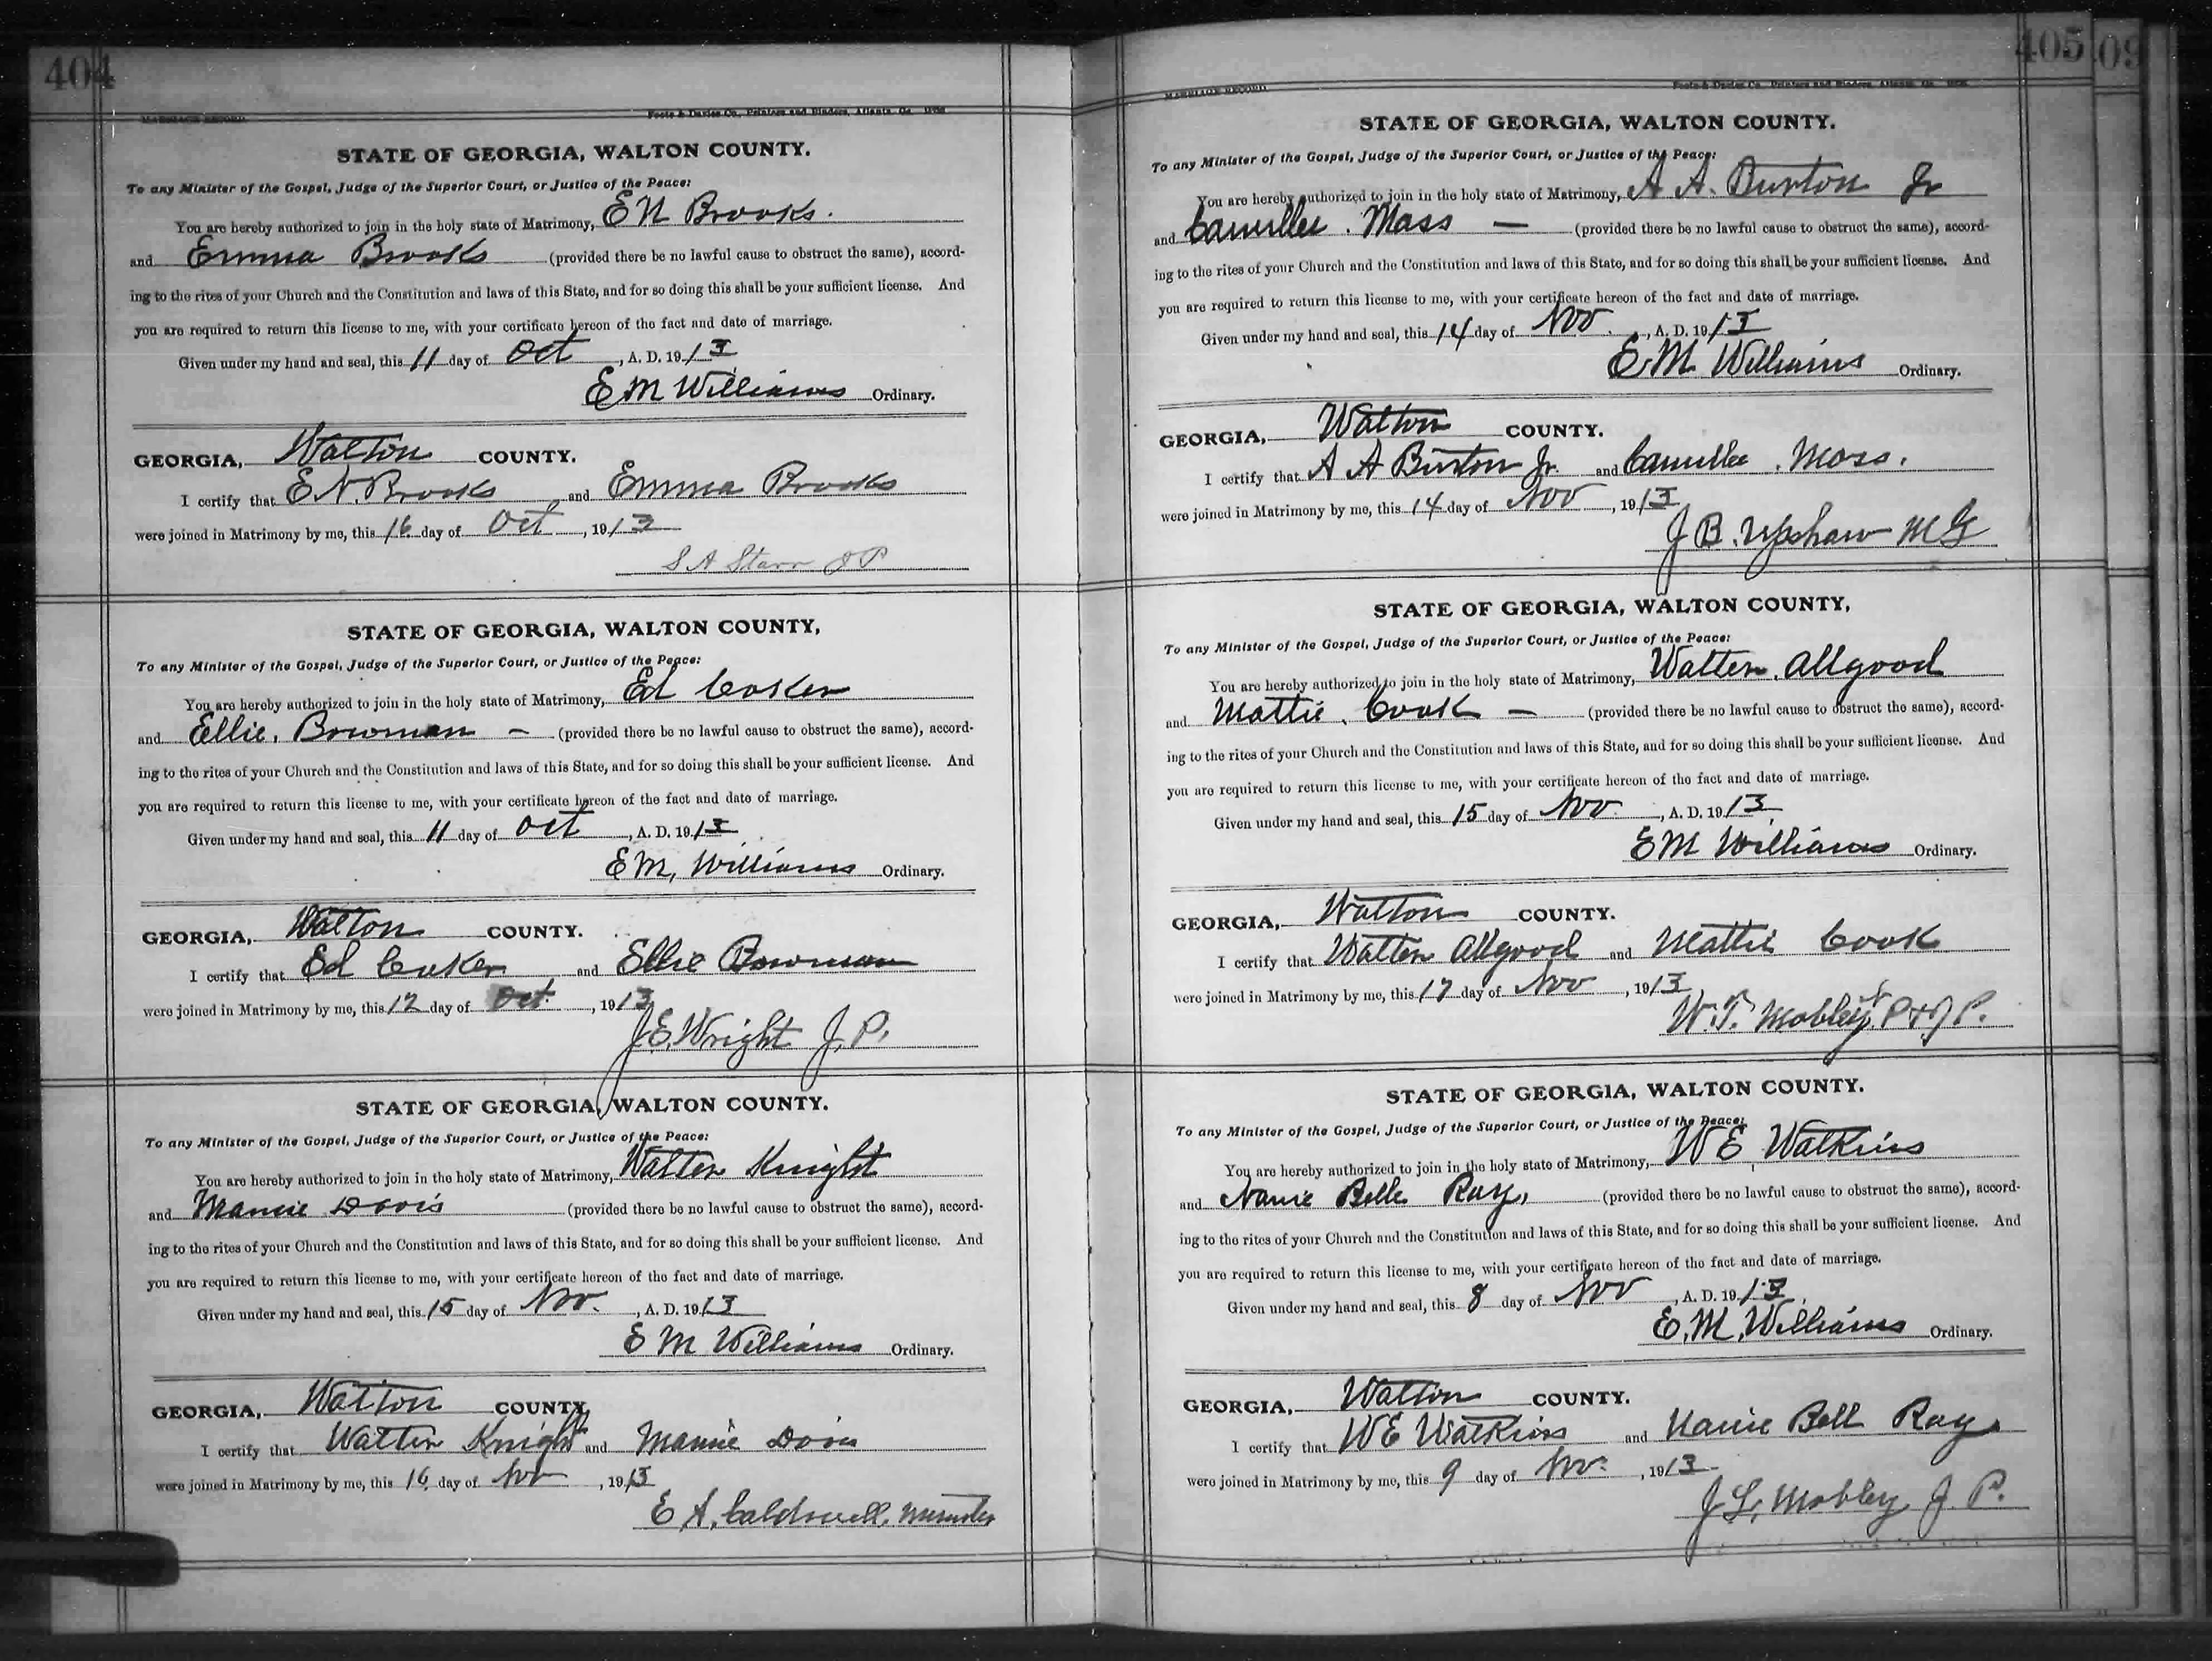 404
MARRIAGE RECORD
Foote & Davies Co., Printers and Binders, Atlanta, Ga.
STATE OF GEORGIA, WALTON COUNTY.
To any Minister of the Gospel, Judge of the Superior Court, or Justice of the Peace:
You are hereby authorized to join in the holy state of Matrimony, E N Brooks.
and Emma Brooks (provided there be no lawful cause to obstruct the same), accord-
ing to the rites of your Church and the Constitution and laws of this State, and for so doing this shall be your sufficient license. And
you are required to return this license to me, with your certificate hereon of the fact and date of marriage.
Given under my hand and seal, this 11 day of Oct, A. D. 1913
E M Williams Ordinary.
GEORGIA, Walton COUNTY.
I certify that E. N. Brooks and Emma Brooks
were joined in Matrimony by me, this 16 day of Oct, 1913
S A Starr J P
STATE OF GEORGIA, WALTON COUNTY,
To any Minister of the Gospel, Judge of the Superior Court, or Justice of the Peace:
You are hereby authorized to join in the holy state of Matrimony, Ed Coker
and Ellie. Bowman — (provided there be no lawful cause to obstruct the same), accord-
ing to the rites of your Church and the Constitution and laws of this State, and for so doing this shall be your sufficient license. And
you are required to return this license to me, with your certificate hereon of the fact and date of marriage.
Given under my hand and seal, this 11 day of Oct, A. D. 1913
E M, Williams Ordinary.
GEORGIA, Walton COUNTY.
I certify that Ed Coker and Ellie Bowman
were joined in Matrimony by me, this 12 day of Oct., 1913
J. E. Wright J. P.
STATE OF GEORGIA, WALTON COUNTY.
To any Minister of the Gospel, Judge of the Superior Court, or Justice of the Peace:
You are hereby authorized to join in the holy state of Matrimony, Walter Knight
and Mamie Davis (provided there be no lawful cause to obstruct the same), accord-
ing to the rites of your Church and the Constitution and laws of this State, and for so doing this shall be your sufficient license. And
you are required to return this license to me, with your certificate hereon of the fact and date of marriage.
Given under my hand and seal, this 15 day of Nov., A. D. 1913
E M Williams Ordinary.
GEORGIA, Walton COUNTY,
I certify that Walter Knight and Mamie Davis
were joined in Matrimony by me, this 16 day of Nov, 1913
E A. Caldwell, Minister
405
09
MARRIAGE RECORD
Foote & Davies Co., Printers and Binders, Atlanta, Ga.
STATE OF GEORGIA, WALTON COUNTY.
To any Minister of the Gospel, Judge of the Superior Court, or Justice of the Peace:
You are hereby authorized to join in the holy state of Matrimony, A A. Burton Jr
and Camilles. Moss — (provided there be no lawful cause to obstruct the same), accord-
ing to the rites of your Church and the Constitution and laws of this State, and for so doing this shall be your sufficient license. And
you are required to return this license to me, with your certificate hereon of the fact and date of marriage.
Given under my hand and seal, this 14 day of Nov., A. D. 1913
E. M. Williams Ordinary.
GEORGIA, Walton COUNTY.
I certify that A A Burton Jr. and Camilla. Moss.
were joined in Matrimony by me, this 14 day of Nov, 1913
J B. Upshaw M G
STATE OF GEORGIA, WALTON COUNTY,
To any Minister of the Gospel, Judge of the Superior Court, or Justice of the Peace:
You are hereby authorized to join in the holy state of Matrimony, Walter. Allgood
and Mattie. Cook — (provided there be no lawful cause to obstruct the same), accord-
ing to the rites of your Church and the Constitution and laws of this State, and for so doing this shall be your sufficient license. And
you are required to return this license to me, with your certificate hereon of the fact and date of marriage.
Given under my hand and seal, this 15 day of Nov., A. D. 1913
E M Williams Ordinary.
GEORGIA, Walton COUNTY.
I certify that Walter Allgood and Mattie Cook
were joined in Matrimony by me, this 17 day of Nov, 1913
W. T. Mobley J. P.
STATE OF GEORGIA, WALTON COUNTY.
To any Minister of the Gospel, Judge of the Superior Court, or Justice of the Peace:
You are hereby authorized to join in the holy state of Matrimony, W E Watkins
and Nanie Belle Ray, (provided there be no lawful cause to obstruct the same), accord-
ing to the rites of your Church and the Constitution and laws of this State, and for so doing this shall be your sufficient license. And
you are required to return this license to me, with your certificate hereon of the fact and date of marriage.
Given under my hand and seal, this 8 day of Nov, A. D. 1913.
E. M. Williams Ordinary.
GEORGIA, Walton COUNTY.
I certify that W E Watkins and Nanie Bell Ray
were joined in Matrimony by me, this 9 day of Nov., 1913
J. L. Mobley J. P.